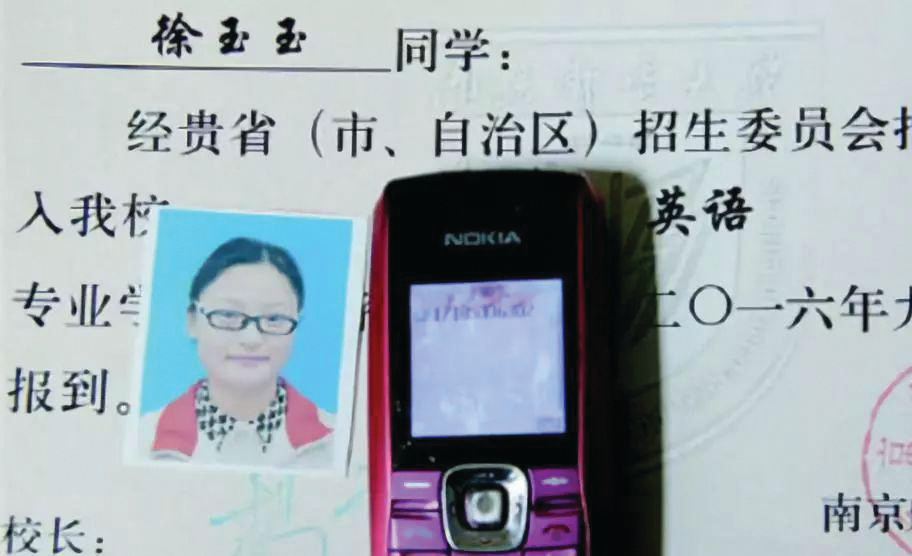 徐玉玉 同学：
经贵省（市、自治区）招生委员会
入我校 英语
专业学 二〇一六年
报到。
校长： 南京
NOKIA